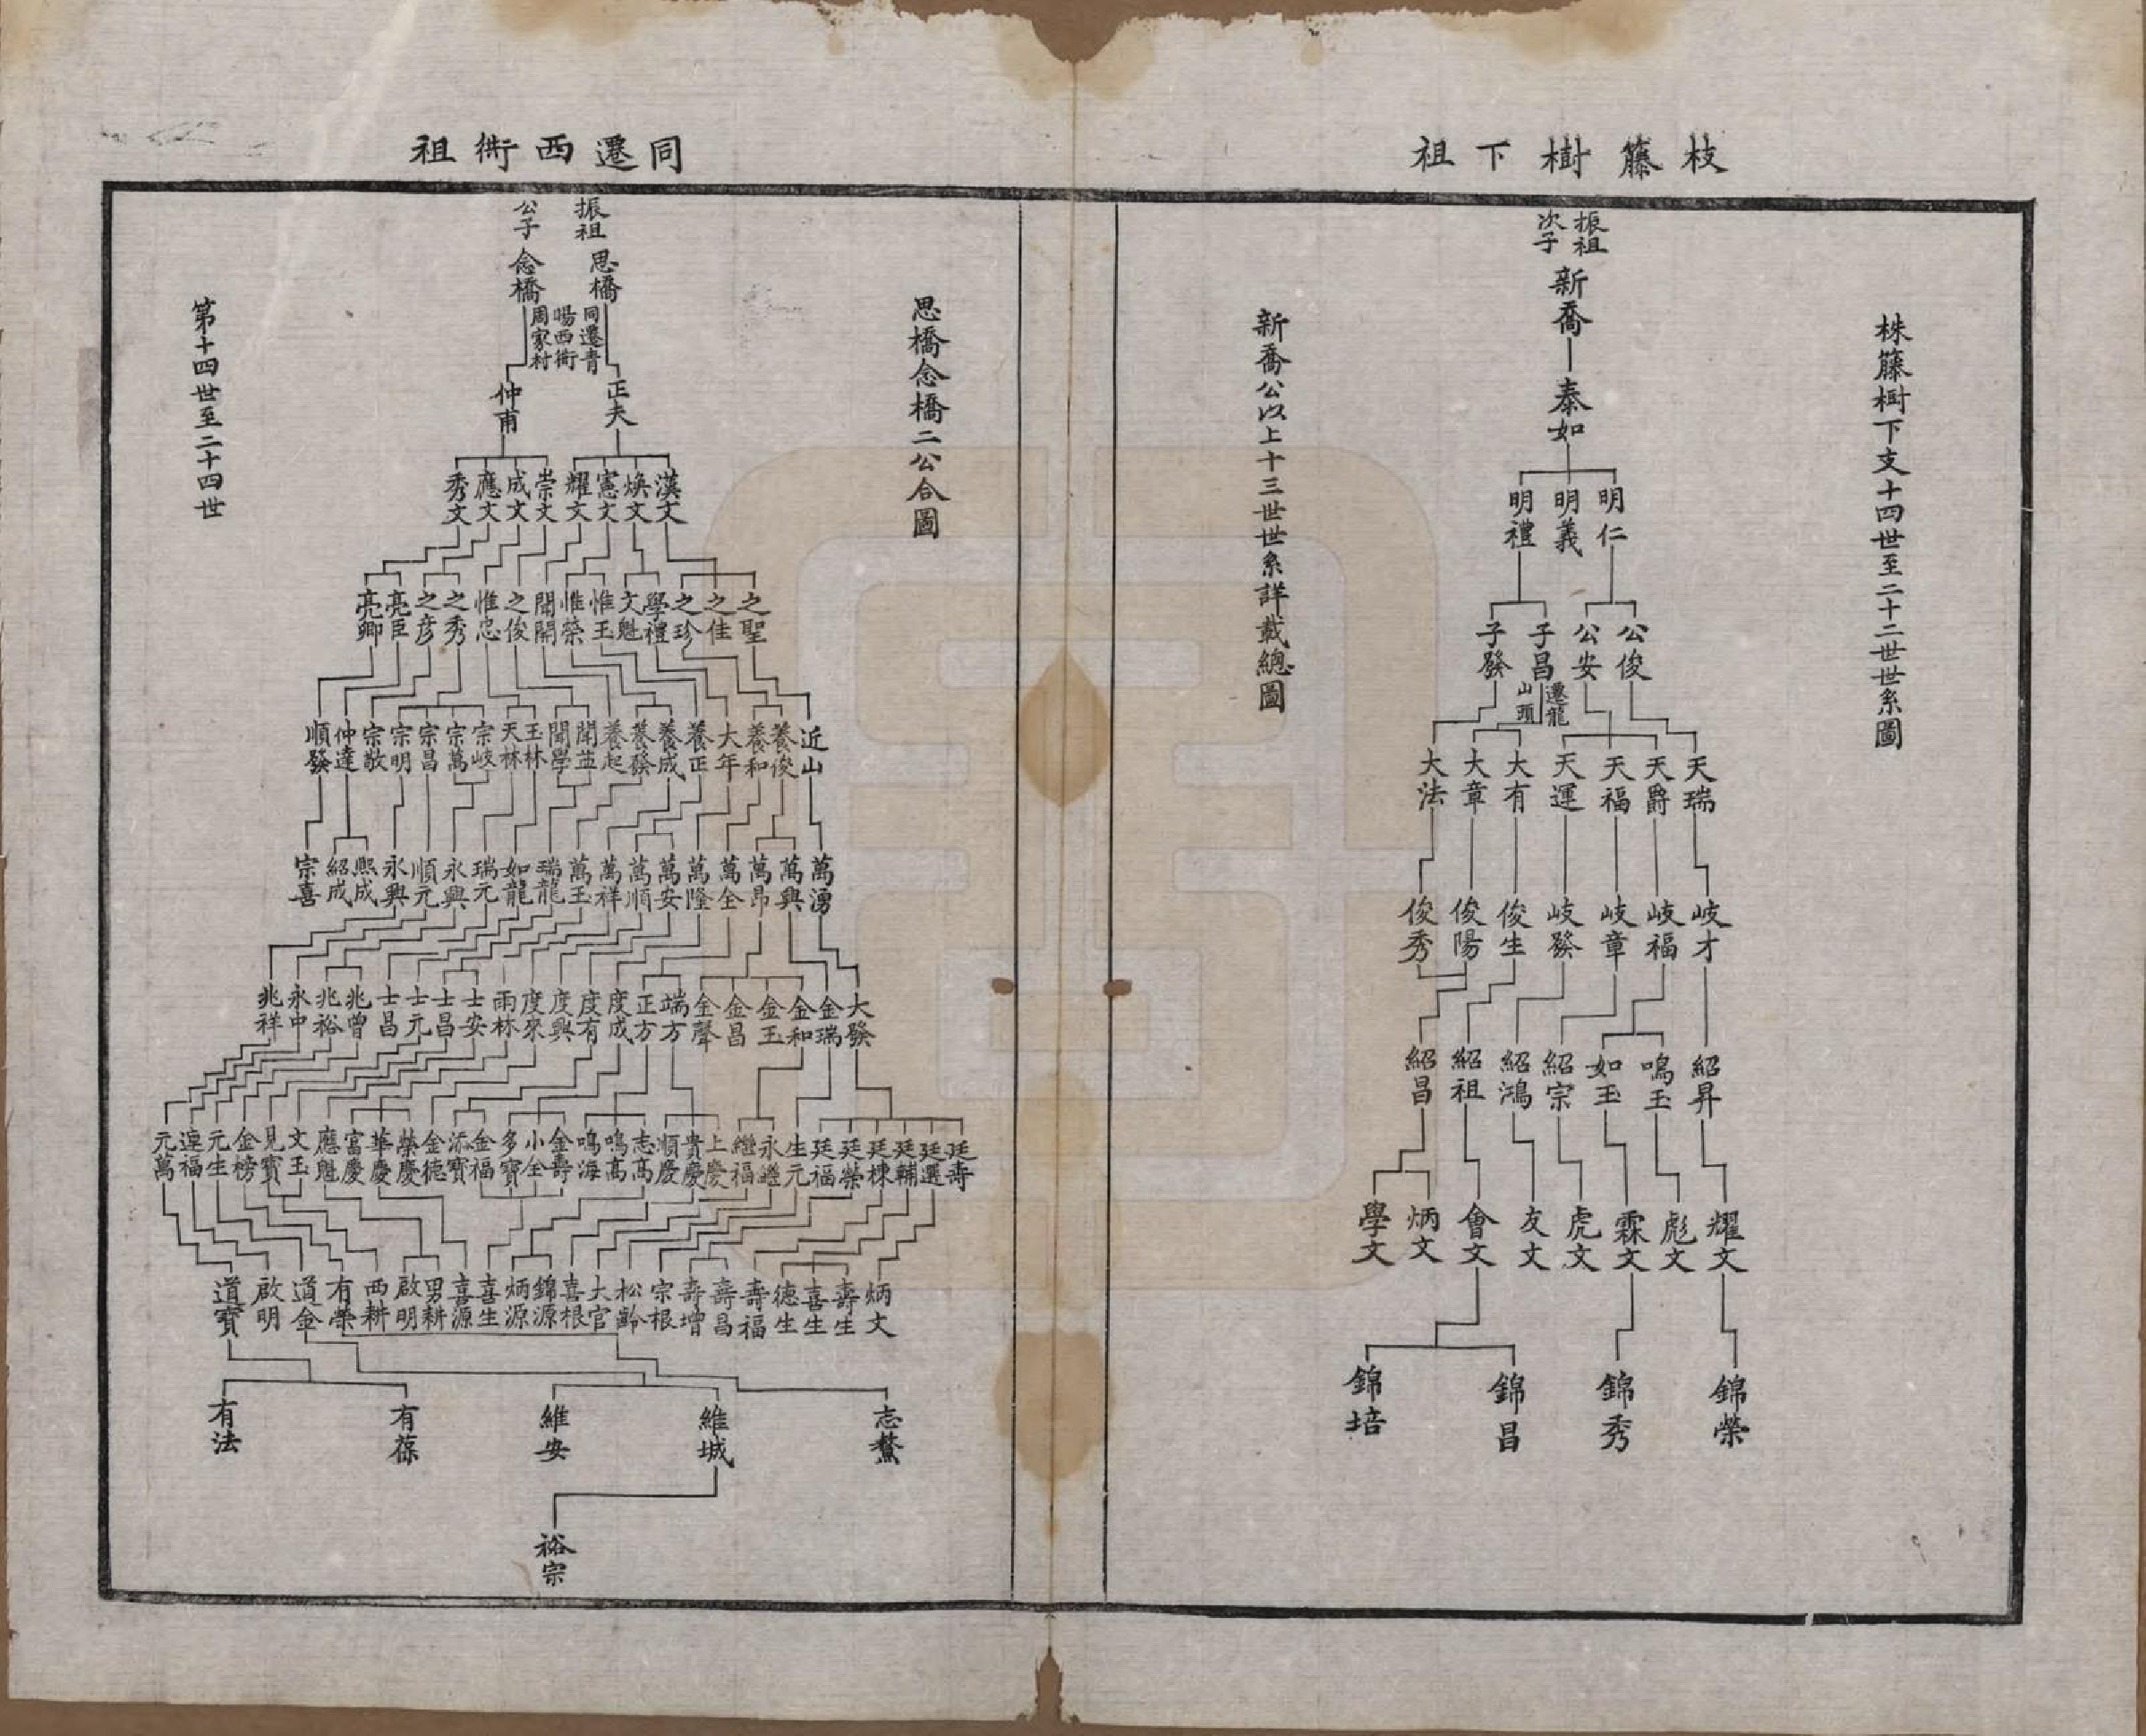 枝籐樹下祖
株籐樹下支十四世至二十二世世系圖
振祖次子
新喬
泰如
明仁 明義 明禮
公俊 公安 子昌 子發
遷龍山頭
天瑞 天爵 天福 天運 大有 大章 大法
岐才 岐福 岐章 岐發 俊生 俊陽 俊秀
紹昇 鳴玉 如玉 紹宗 紹鴻 紹祖 紹昌
耀文 彪文 霖文 虎文 友文 會文 炳文 學文
錦榮 錦秀 錦昌 錦培
新喬公以上十三世世系詳載總圖
同遷西衖祖
思橋念橋二公合圖
振祖公子
思橋 念橋
同遷青暘西衖周家村
正夫 仲甫
漢文 煥文 憲文 耀文 崇文 成文 應文 秀文
之聖 之佳 之珍 學禮 文魁 惟玉 惟榮 開開 之俊 惟忠 之秀 之彦 亮臣 亮卿
近山 養俊 養和 大年 養正 養成 養發 養起 開並 開學 玉林 天林 宗岐 宗萬 宗昌 宗明 宗敬 仲達 順發
萬湧 萬興 萬昂 萬全 萬隆 萬安 萬順 萬祥 萬玉 瑞龍 如龍 瑞元 永興 順元 永興 熙成 紹成 宗喜
大發 金瑞 金和 金玉 金昌 金聲 端方 正方 度成 度有 度興 度來 雨林 士安 士昌 士元 士昌 兆曾 兆裕 永中 兆祥
廷壽 廷選 廷輔 廷棟 廷榮 廷福 生元 永繼 繼福 上慶 貴慶 順慶 志高 鳴高 鳴海 金壽 小全 多寶 金福 添寶 金德 榮慶 華慶 富慶 應魁 文玉 見寶 金榜 元生 連福 元萬
炳文 壽生 喜生 德生 壽福 壽昌 壽增 宗根 松齡 大官 喜根 錦源 炳源 喜生 喜源 男耕 啟明 西耕 有榮 道金 啟明 道寶
志鰲 維城 維安 有葆 有法
裕宗
第十四世至二十四世